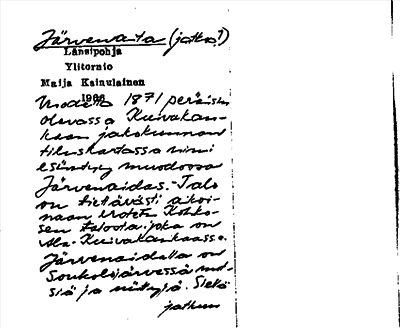 Järvenaita (jatko 1)
Länsipohja
Ylitornio
Maija Kainulainen
1966
Vuodelta 1871 peräisin
olevassa Kuivakan-
kaan jakokunnan
tiluskartassa nimi
esiintyy muodossa
Järvenaidas. - Talo
on tietävästi aikoi-
naan erotettu Kohko-
sen talosta, joka on
Ala-Kuivakankaassa.
Järvenaidalla on
Soukolojärvessä met-
siä ja niittyjä. Sieltä
jatkuu